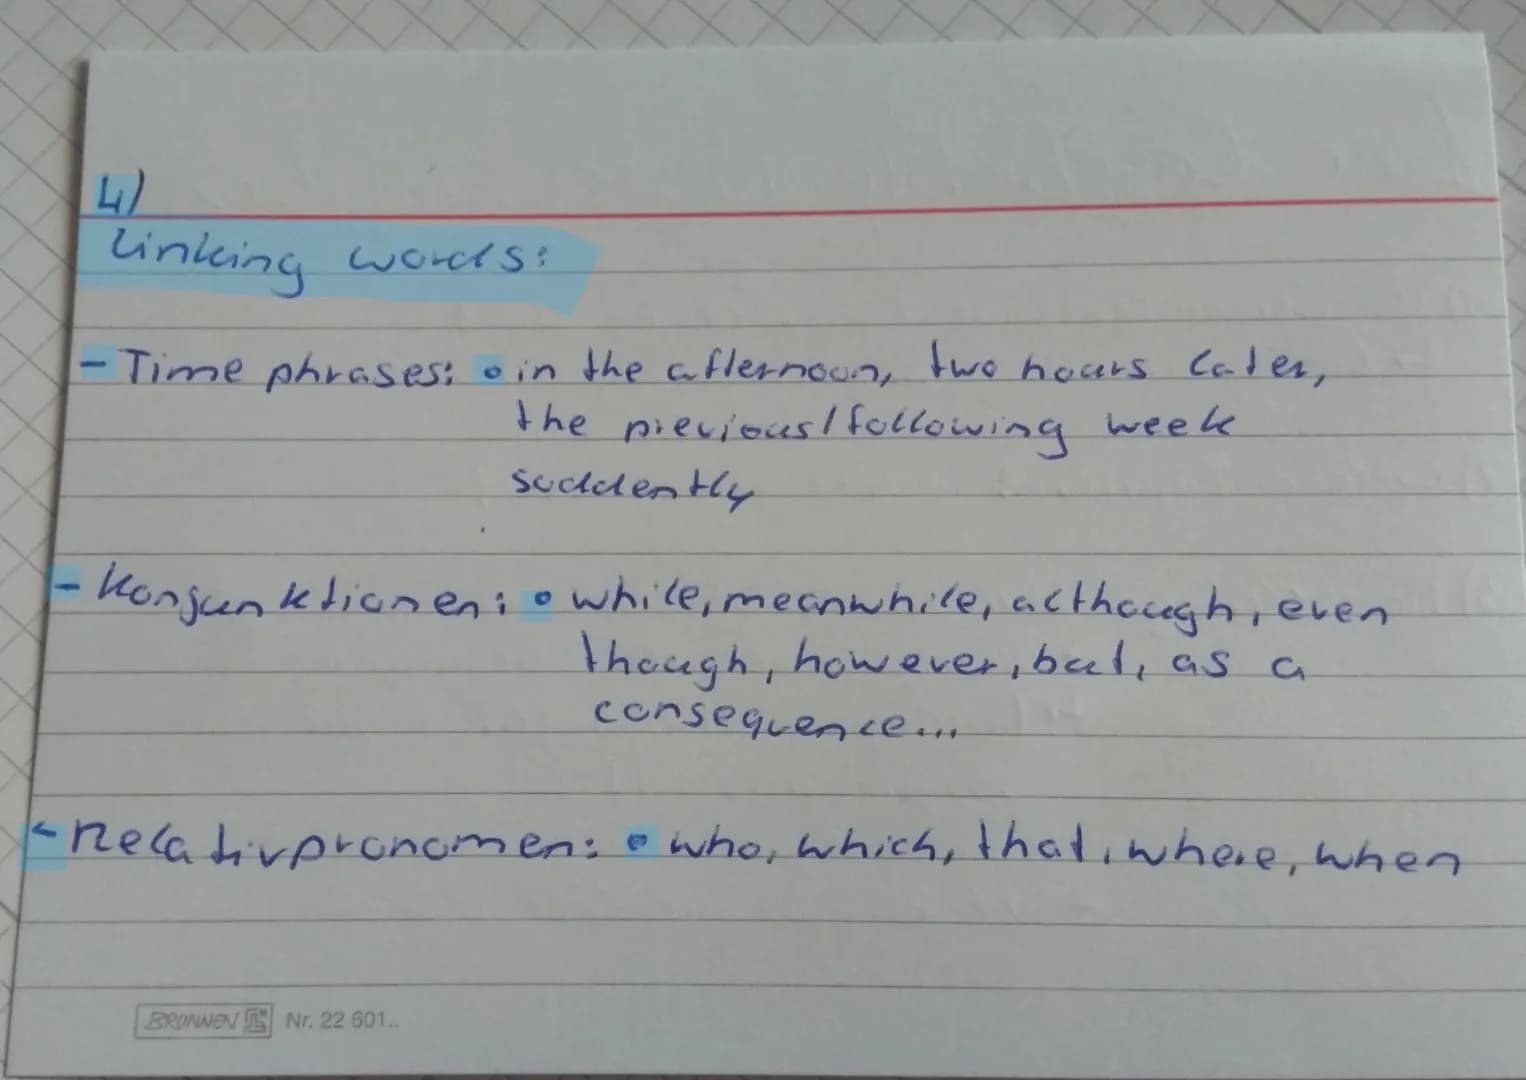 4)
Linking words:
- Time phrases: o in the afternoon, two hours later,
the previous/following week
suddently
- Konjunktionen: o while, meanwhile, although, even
though, however, but, as a
consequence...
- Relativpronomen: o who, which, that, where, when
BRUNNEN Nr. 22 601..